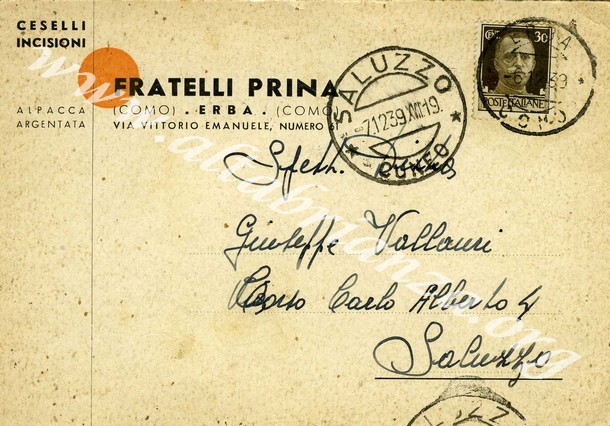 CESELLI
INCISIONI
ALPACCA
ARGENTATA
FRATELLI PRINA
(COMO) . ERBA . (COMO
VIA VITTORIO EMANUELE, NUMERO 61
CEN. 30
POSTE ITALIANE
ERBA
39
COMO
SALUZZO
7.12.39.XVIII 19.
CUNEO
Spett. Ditta
Giuseppe Vallauri
Corso Carlo Alberto 4
Saluzzo
LUZZ